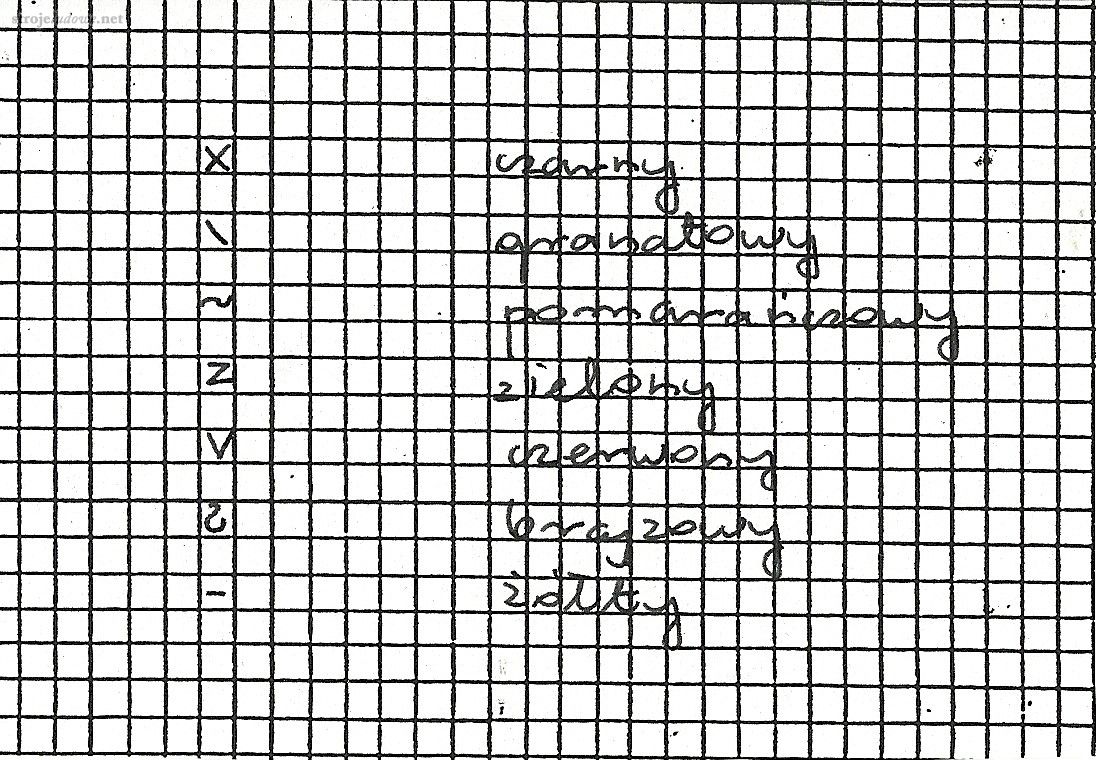 strojeludowe.net
X czarny
\ granatowy
~ pomarańczowy
Z zielony
V czerwony
2 brązowy
- żółty